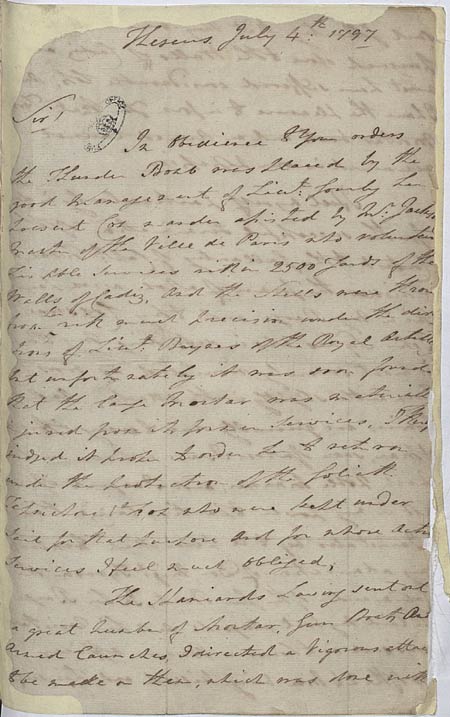 Theseus July 4th: 1797
Sir!
In Obedience to Your orders
the Thunder Bomb was placed by the
good Management of Lieut. Gourly her
present Commander assisted by Mr. Jackson
Master of the Ville de Paris who volunteer
his able Services within 2500 Yards of the
Walls of Cadiz, and the Shells were thro
from with much precision under the dire
tions of Lieut. Baynes of the Royal Artille
but unfortunately it was soon found
that the large Mortar was materially
injured from its former services, I the
judged it proper to order her to return
under the protection of the Goliath
Terpsichore & Fox who were kept under
Sail for that purpose and for whose activ
Services I feel much obliged,
The Spaniards having sent out
a great number of Mortar, Gun Boats An
Armed Launches, I directed a Vigorous attac
to be made on them, which was done with